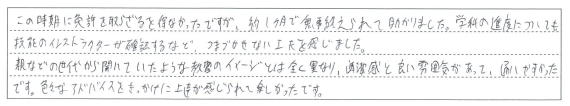 この時期に免許を取らざるを得なかったですが、約1ヶ月で無事終えられて助かりました。学科の進度についても
技能のインストラクターが確認するなど、つまづかせない工夫を感じました。
親などの世代から聞いていたような教習のイメージとは全く異なり、清潔感と良い雰囲気があって、通いやすかった
です。色々なアドバイスをきっかけに上達が感じられて楽しかったです。